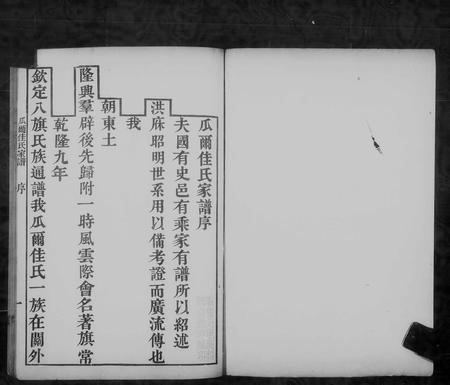 瓜爾佳氏家譜序
夫國有史邑有乘家有譜所以紹述
洪庥昭明世系用以備考證而廣流傳也
我
朝東土
隆興羣辟後先歸附一時風雲際會名著旗常
乾隆九年
欽定八旗氏族通譜我瓜爾佳氏一族在關外
瓜爾佳氏家譜 序 一